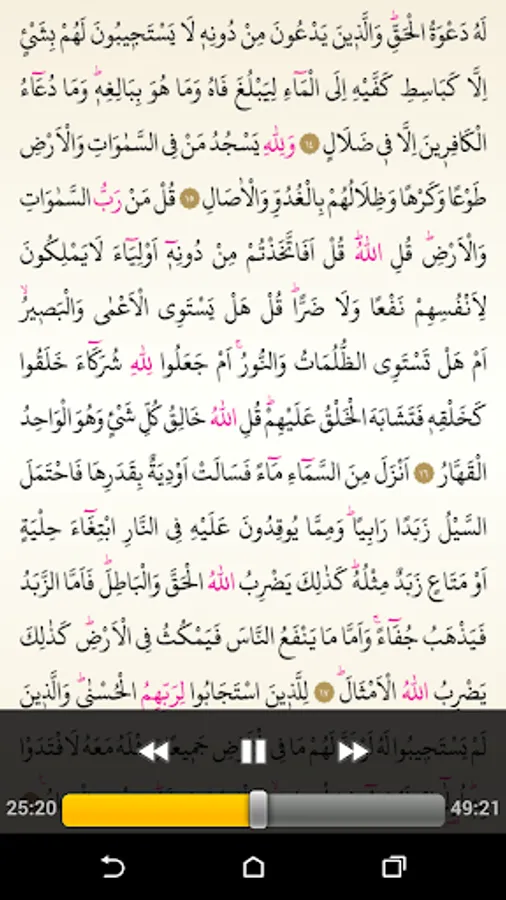 لَهُ دَعْوَةُ الْحَقِّۜ وَالَّذ۪ينَ يَدْعُونَ مِنْ دُونِه۪ لَا يَسْتَج۪يبُونَ لَهُمْ بِشَيْءٍ
اِلَّا كَبَاسِطِ كَفَّيْهِ اِلَى الْمَٓاءِ لِيَبْلُغَ فَاهُ وَمَا هُوَ بِبَالِغِه۪ۜ وَمَا دُعَٓاءُ
الْكَافِر۪ينَ اِلَّا ف۪ي ضَلَالٍ ١٤ وَلِلّٰهِ يَسْجُدُ مَنْ فِي السَّمٰوَاتِ وَالْاَرْضِ
طَوْعًا وَكَرْهًا وَظِلَالُهُمْ بِالْغُدُوِّ وَالْاٰصَالِ ١٥ قُلْ مَنْ رَبُّ السَّمٰوَاتِ
وَالْاَرْضِۜ قُلِ اللّٰهُۜ قُلْ اَفَاتَّخَذْتُمْ مِنْ دُونِه۪ٓ اَوْلِيَٓاءَ لَا يَمْلِكُونَ
لِاَنْفُسِهِمْ نَفْعًا وَلَا ضَرًّاۜ قُلْ هَلْ يَسْتَوِي الْاَعْمٰى وَالْبَص۪يرُۙ
اَمْ هَلْ تَسْتَوِي الظُّلُمَاتُ وَالنُّورُۚ اَمْ جَعَلُوا لِلّٰهِ شُرَكَٓاءَ خَلَقُوا
كَخَلْقِه۪ فَتَشَابَهَ الْخَلْقُ عَلَيْهِمْۜ قُلِ اللّٰهُ خَالِقُ كُلِّ شَيْءٍ وَهُوَ الْوَاحِدُ
الْقَهَّارُ ١٦ اَنْزَلَ مِنَ السَّمَٓاءِ مَٓاءً فَسَالَتْ اَوْدِيَةٌ بِقَدَرِهَا فَاحْتَمَلَ
السَّيْلُ زَبَدًا رَابِيًاۜ وَمِمَّا يُوقِدُونَ عَلَيْهِ فِي النَّارِ ابْتِغَٓاءَ حِلْيَةٍ
اَوْ مَتَاعٍ زَبَدٌ مِثْلُهُۜ كَذٰلِكَ يَضْرِبُ اللّٰهُ الْحَقَّ وَالْبَاطِلَۜ فَاَمَّا الزَّبَدُ
فَيَذْهَبُ جُفَٓاءًۚ وَاَمَّا مَا يَنْفَعُ النَّاسَ فَيَمْكُثُ فِي الْاَرْضِۜ كَذٰلِكَ
يَضْرِبُ اللّٰهُ الْاَمْثَالَۜ ١٧ لِلَّذ۪ينَ اسْتَجَابُوا لِرَبِّهِمُ الْحُسْنٰىۜ وَالَّذ۪ينَ
لَمْ يَسْتَج۪يبُوا لَهُ لَوْ اَنَّ لَهُمْ مَا فِي الْاَرْضِ جَم۪يعًا وَمِثْلَهُ مَعَهُ لَافْتَدَوْا
25:20 49:21